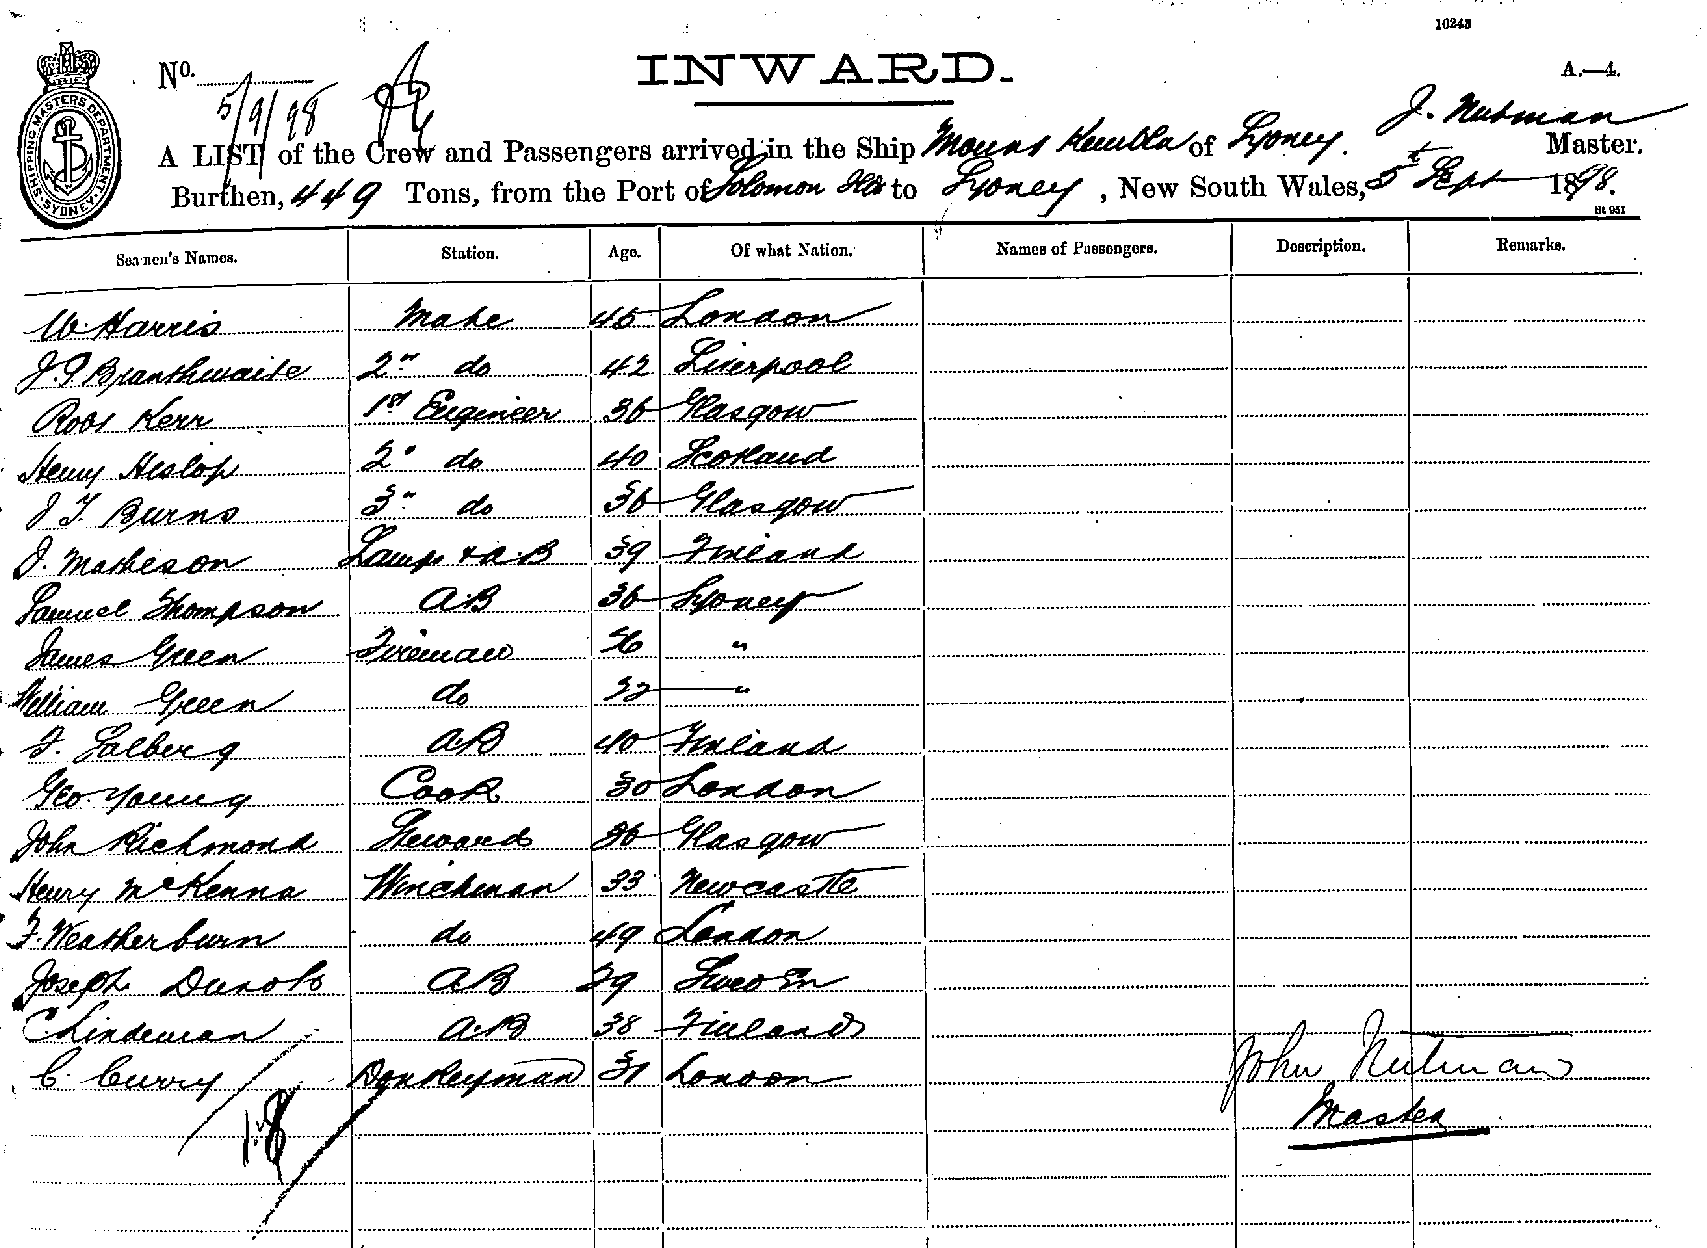 10243
SHIPPING MASTERS DEPARTMENT. SYDNEY.
No.
INWARD.
A.—4.
5/9/98
A LIST of the Crew and Passengers arrived in the Ship Mount Kembla of Sydney. J. Nutman Master.
Burthen, 449 Tons, from the Port of Solomon Ilds to Sydney, New South Wales, 5th Sept 1898.
St 951
Seamen's Names. Station. Age. Of what Nation. Names of Passengers. Description. Remarks.
W. Harris Mate 45 London
J. P Branthwaite 2nd do 42 Liverpool
Robt Kerr 1st Engineer 36 Glasgow
Henry Heslop 2" do 40 Scotland
J T. Burns 3" do 36 Glasgow
J. Matheson Lamps & A.B 39 Finland
Samuel Thompson A.B 36 Sydney
James Green Fireman "
William Green do "
F. Salberg A.B 40 Finland
Geo Young Cook 30 London
John Richmond Steward 36 Glasgow
Henry McKenna Winchman 33 Newcastle
F. Weatherburn do 49 London
Joseph AB 29 Sweden
C Lindeman A.B 38 Finland
C. Curry Donkeyman 31 London
John Nutman
Master
18